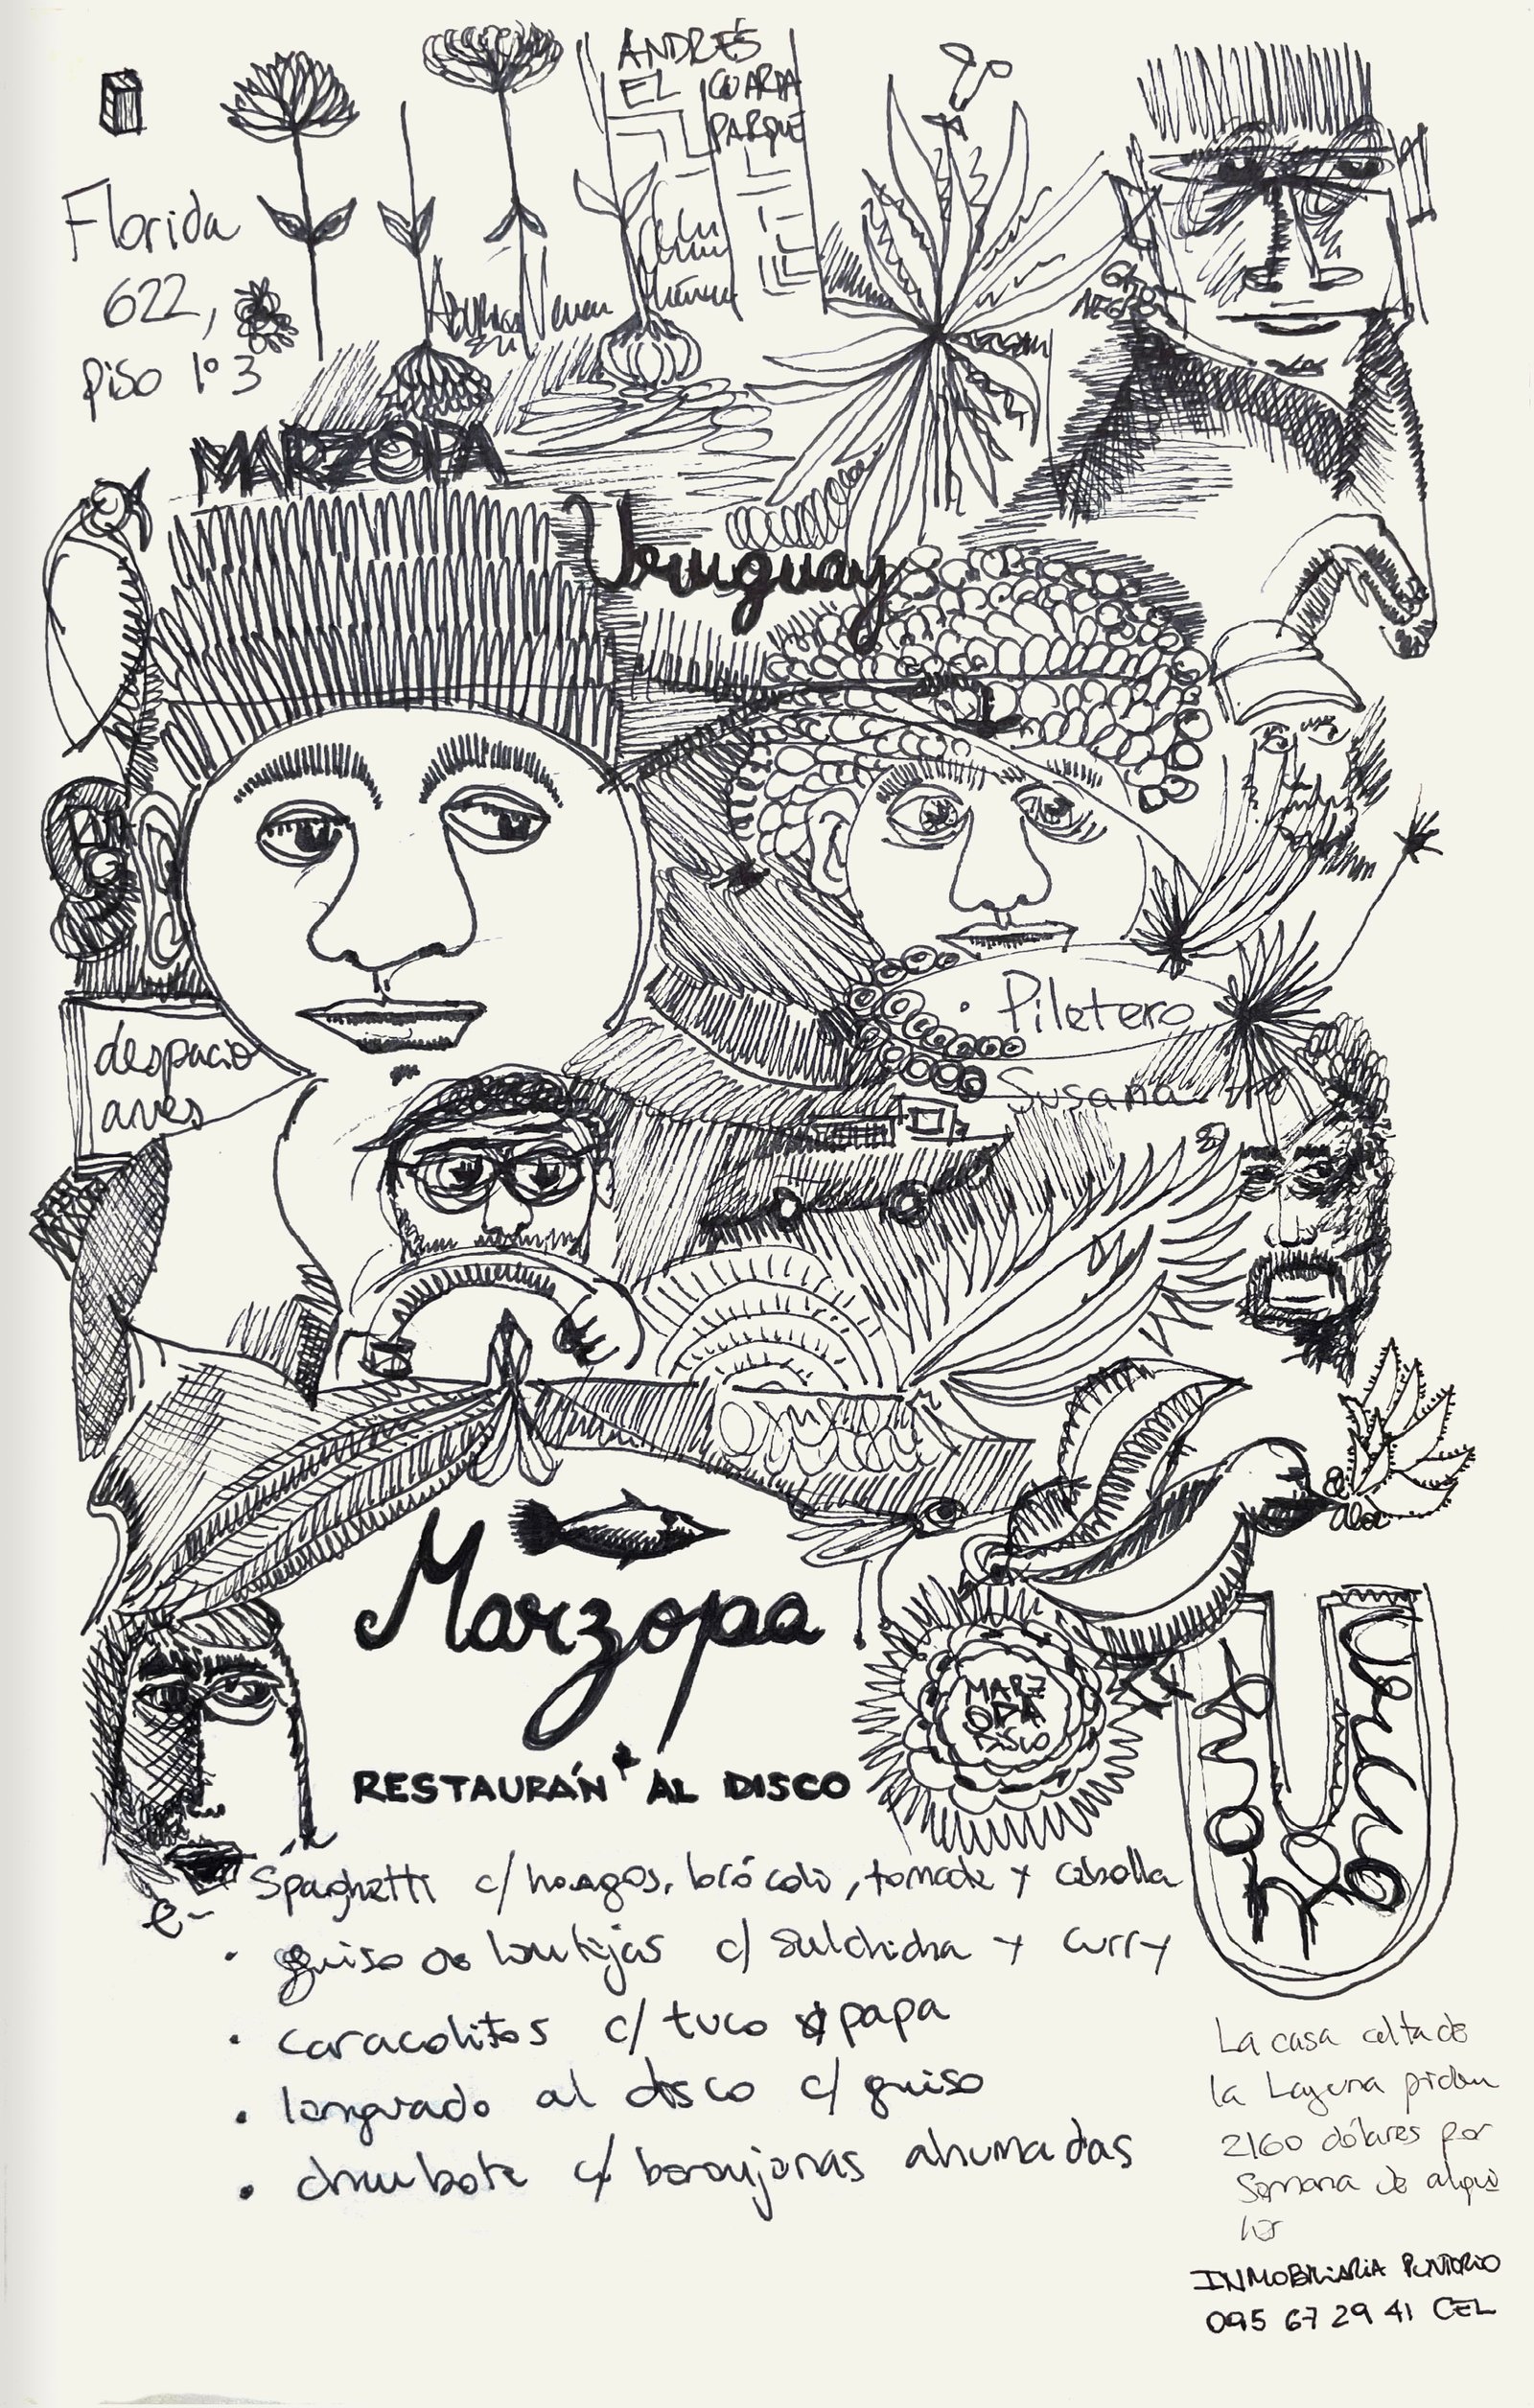 ANDRÉS
EL GUARDA
PARQUE
Florida
622,
piso 1º 3
GATO
NEGRO
MARZOPA
Uruguay
Piletero
Susana
despacio
aves
el
aloe
Marzopa
MARZ
OPA
DISCO
RESTAURÁN AL DISCO
Spaghetti c/ hongos, brócoli, tomate y cebolla
guiso de lentejas c/ salchicha y curry
caracolitos c/ tuco papa
al disco c/ guiso
c/ berenjenas ahumadas
La casa celta de
la Laguna piden
2160 dólares por
Semana de alqui
ler
INMOBILIARIA
095 67 29 41 CEL